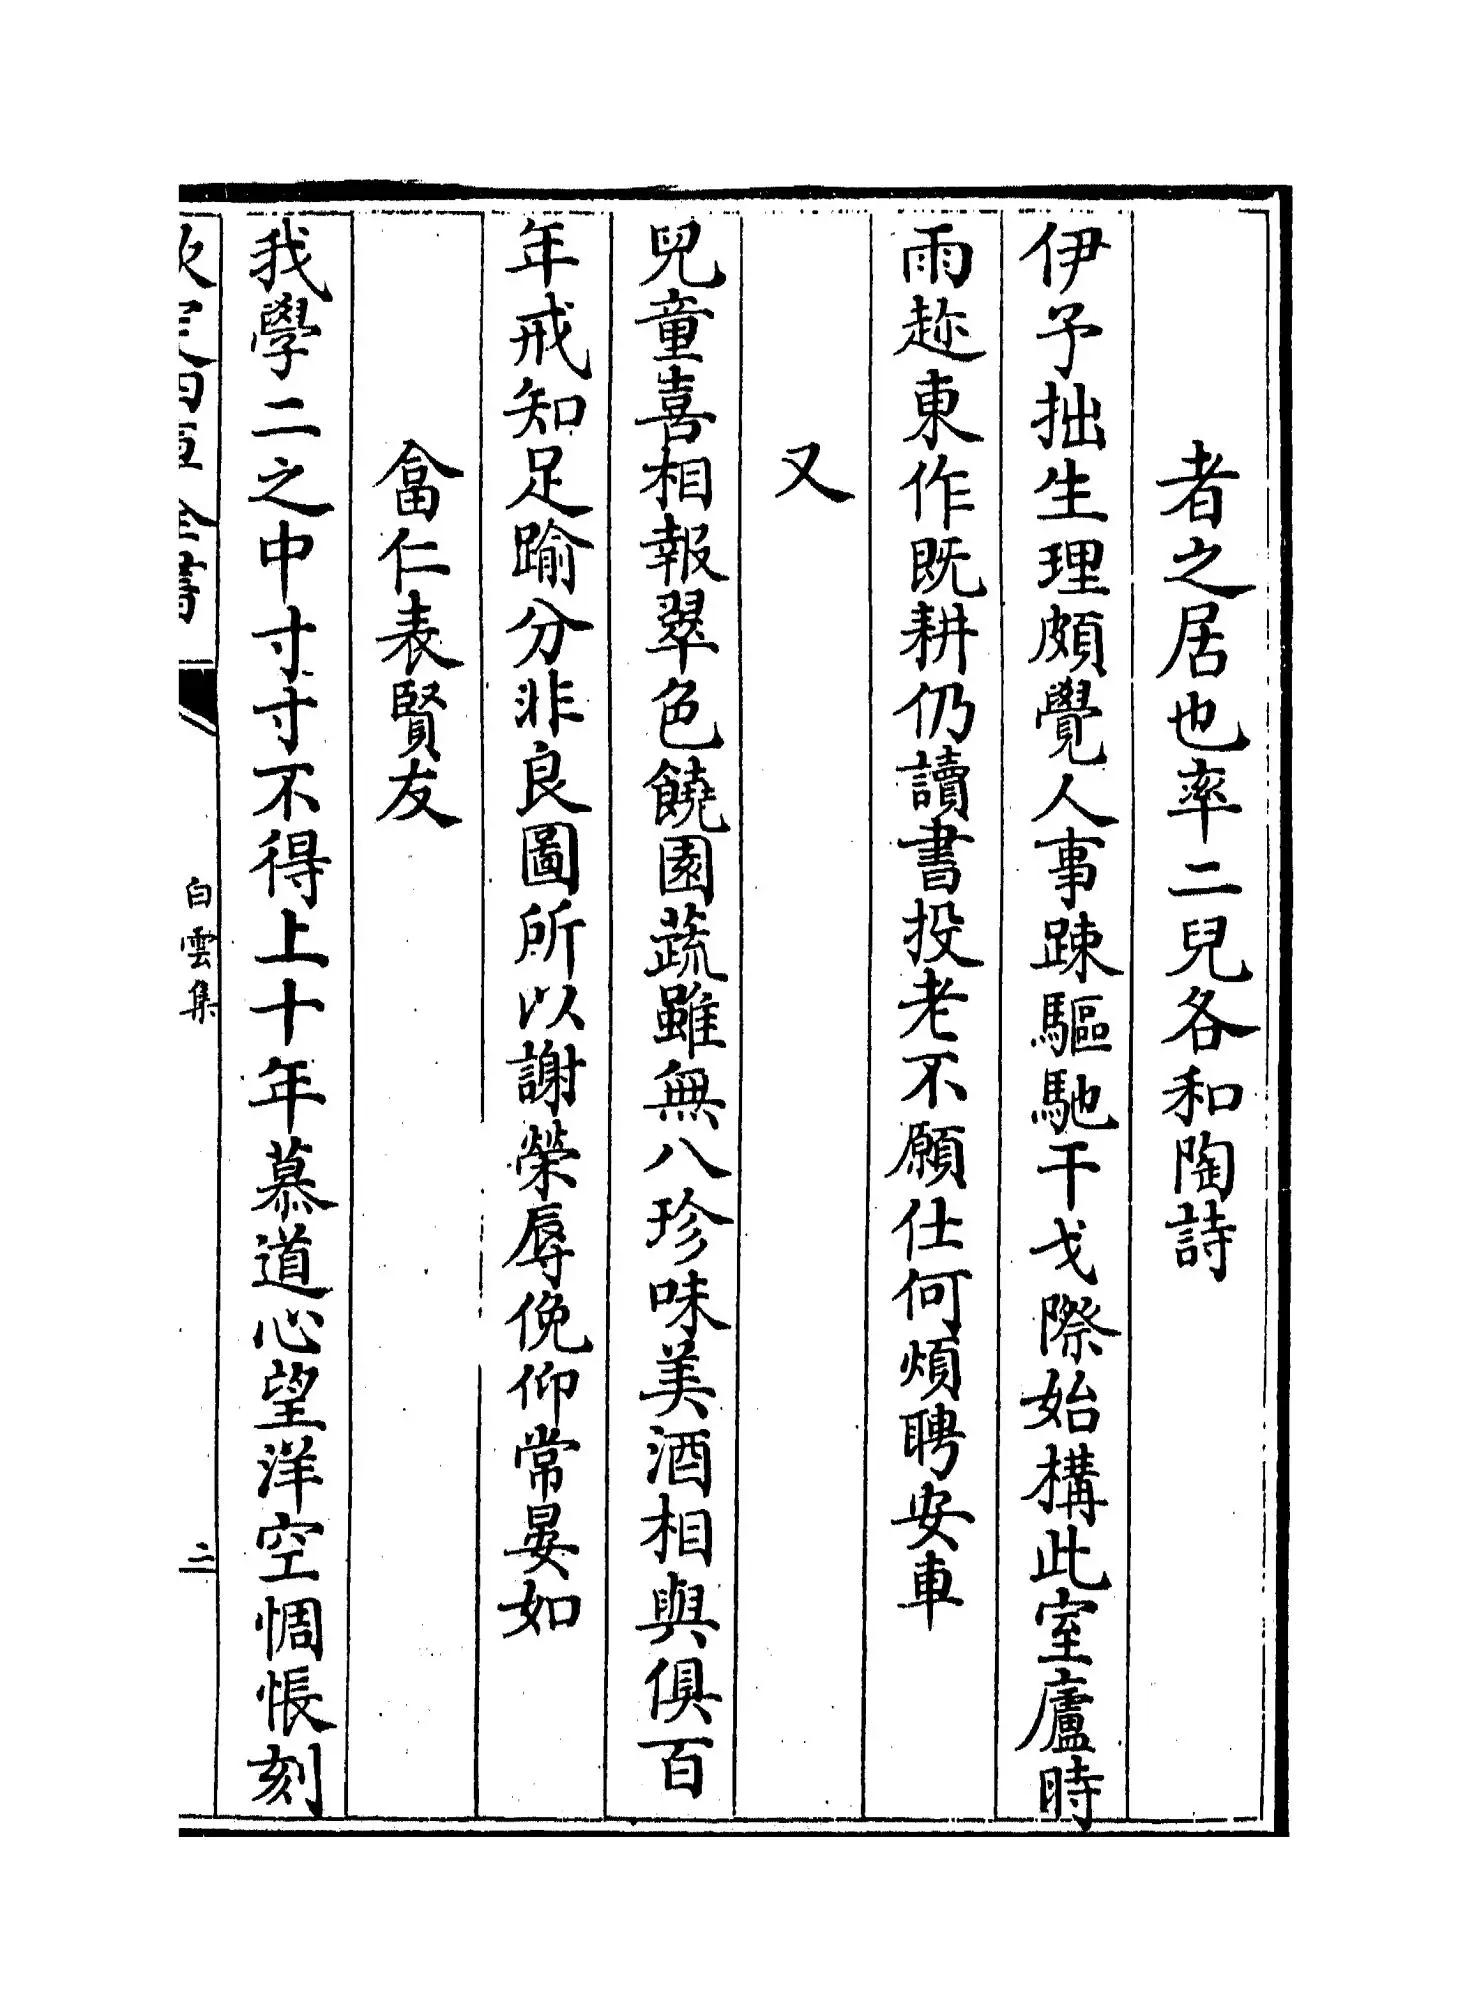 者之居也率二兒各和陶詩
伊予拙生理頗覺人事踈驅馳干戈際始構此室廬時
雨趂東作既耕仍讀書投老不願仕何煩聘安車
又
兒童喜相報翠色饒園蔬雖無八珍味美酒相與俱百
年戒知足踰分非良圖所以謝榮辱俛仰常晏如
畣仁表賢友
我學二之中寸寸不得上十年慕道心望洋空惆悵刻
欽定四庫全書
白雲集
二